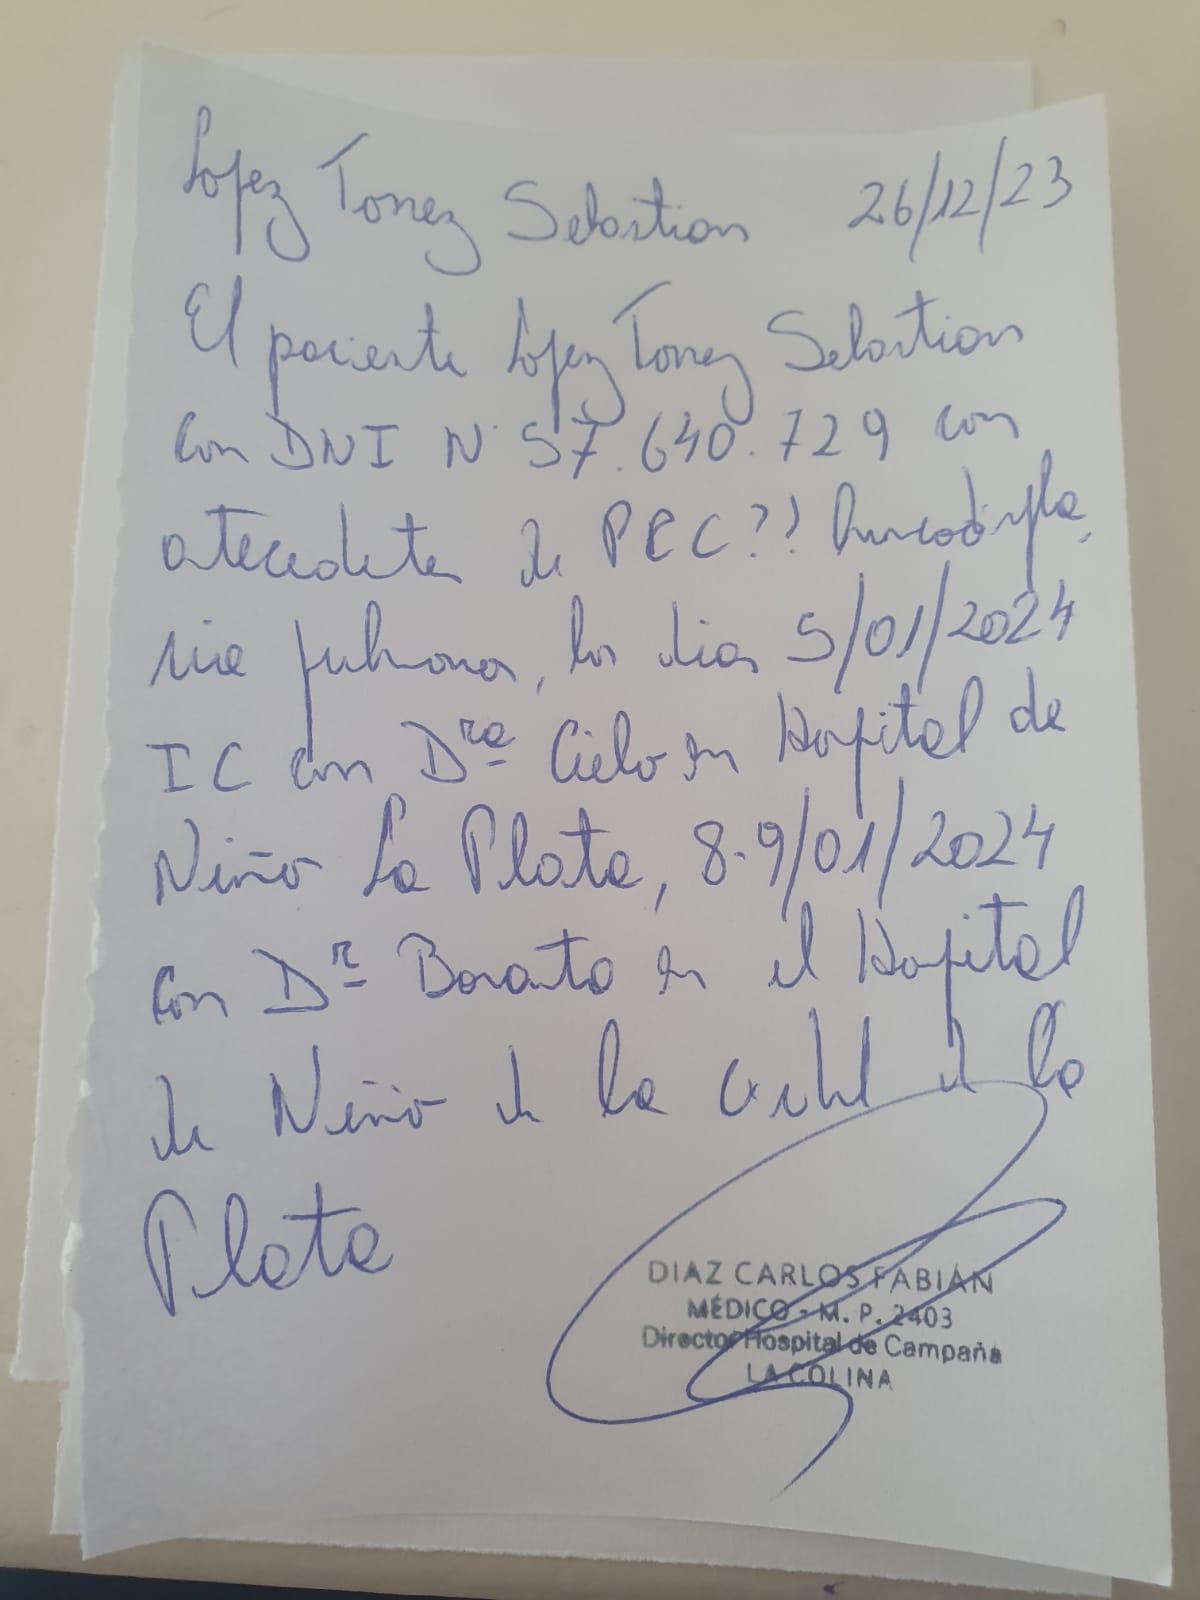 Lopez Torrez Sebastian 26/12/23
El paciente Lopez Torrez Sebastian
con DNI N° 57.640.729 con
atecedetes de PRC??
pulmonar, los dias 5/01/2024
IC con Dra Cielo en Hospital de
Niño La Plata, 8-9/01/2024
con Dr Boranto en el Hospital
de Niño de la de la
Plata
DIAZ CARLOS FABIÁN
MÉDICO - M. P. 2403
Director Hospital de Campaña
LA COLINA